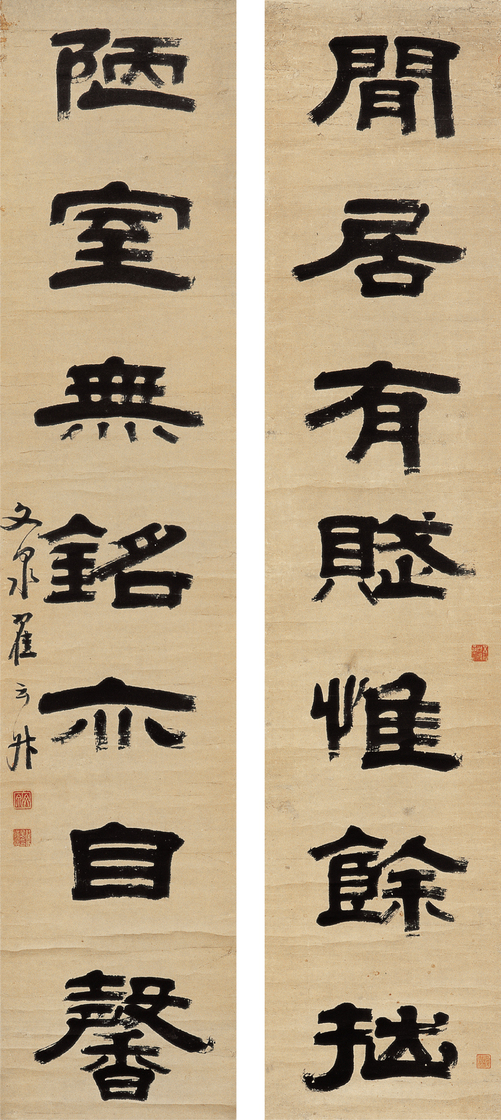 閒居有賦惟餘拙
陋室無銘亦自馨
文泉翟云升